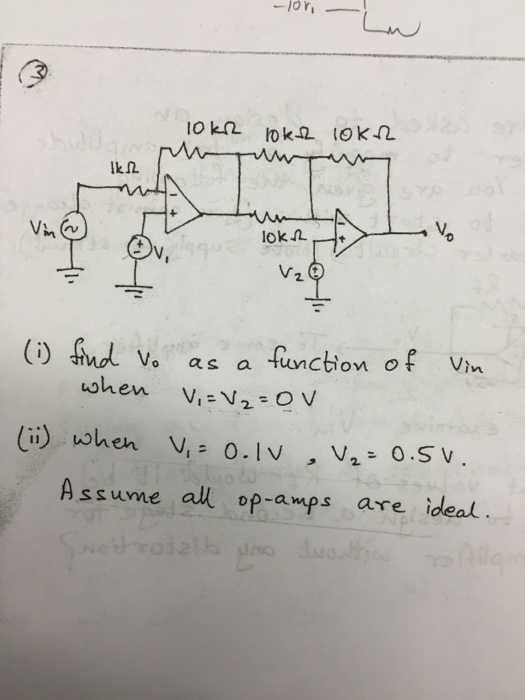 -10V,
3
10kΩ 10kΩ 10kΩ
1kΩ
- +
Vin
V₁
10kΩ
- +
V₀
V₂
(i) find V₀ as a function of Vin
when V₁=V₂=0V
(ii) when V₁ = 0.1V , V₂ = 0.5V.
Assume all op-amps are ideal.